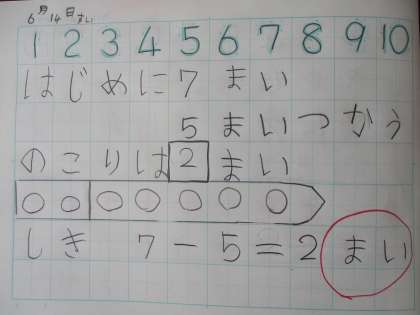 6月14日すい
1 2 3 4 5 6 7 8 9 10
はじめに7まい
5まいつかう
のこりは2まい
しき 7-5=2まい